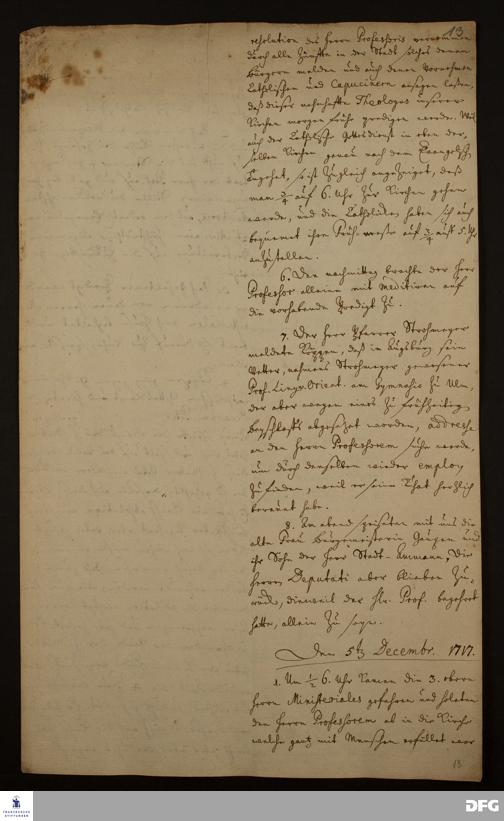 13
resolution des Herrn Professoris vernommen
durch alle Zünfften in der Stadt solches denen
Bürgern melden und auch denen vornehmen
Catholischen und Capucinern ansagen lassen,
daß dieser nahmhaffte Theologus in unserer
Kirchen morgen frühe predigen werde. Weil
auch der Catholische Gottesdienst in eben der,
selben Kirchen genau nach dem Evangelisch.
angehet, so ist zugleich angezeiget, daß
man 3/4 auf 6. Uhr zur Kirchen gehen
werde, und die Catholicken haben sich auch
bequemet ihre Früh-Messe auf 3/4 auf 5. Uhr
anzustellen.
6. Den nachmittag brachte der Herr
Professor alleine mit meditiren auf
die vorhabende Predigt zu.
7. Der Herr Pfarrer Strohmeyer
meldete, daß in Augsburg sein
Vetter, nahmens Strohmeyer gewesener
Prof. Lingv. Orient. am Gymnasio zu Ulm,
der aber wegen eines zu frühzeitigen
Beyschlafs abgesetzet worden, addresse
an den Herrn Professorem suchen werde,
um durch denselben wieder employ
zu finden, weil er seine That herzlich
bereuet habe.
8. Am abend speiseten mit uns die
alte Frau Bürgermeisterin und
ihr Sohn der Herr Stadt-Ammann, die
Herren Deputati aber blieben zu,
rück, dieweil der Hr. Prof. begehret
hatte, allein zu seyn.
Den 5ten Decembr. 1717.
1. Um 1/2 6. Uhr kamen die 3. obern
Herrn Ministeriales gefahren und holeten
den Herrn Professorem ab in die Kirche
welche gantz mit Menschen erfüllet war
13
FRANCKESCHE STIFTUNGEN
DFG